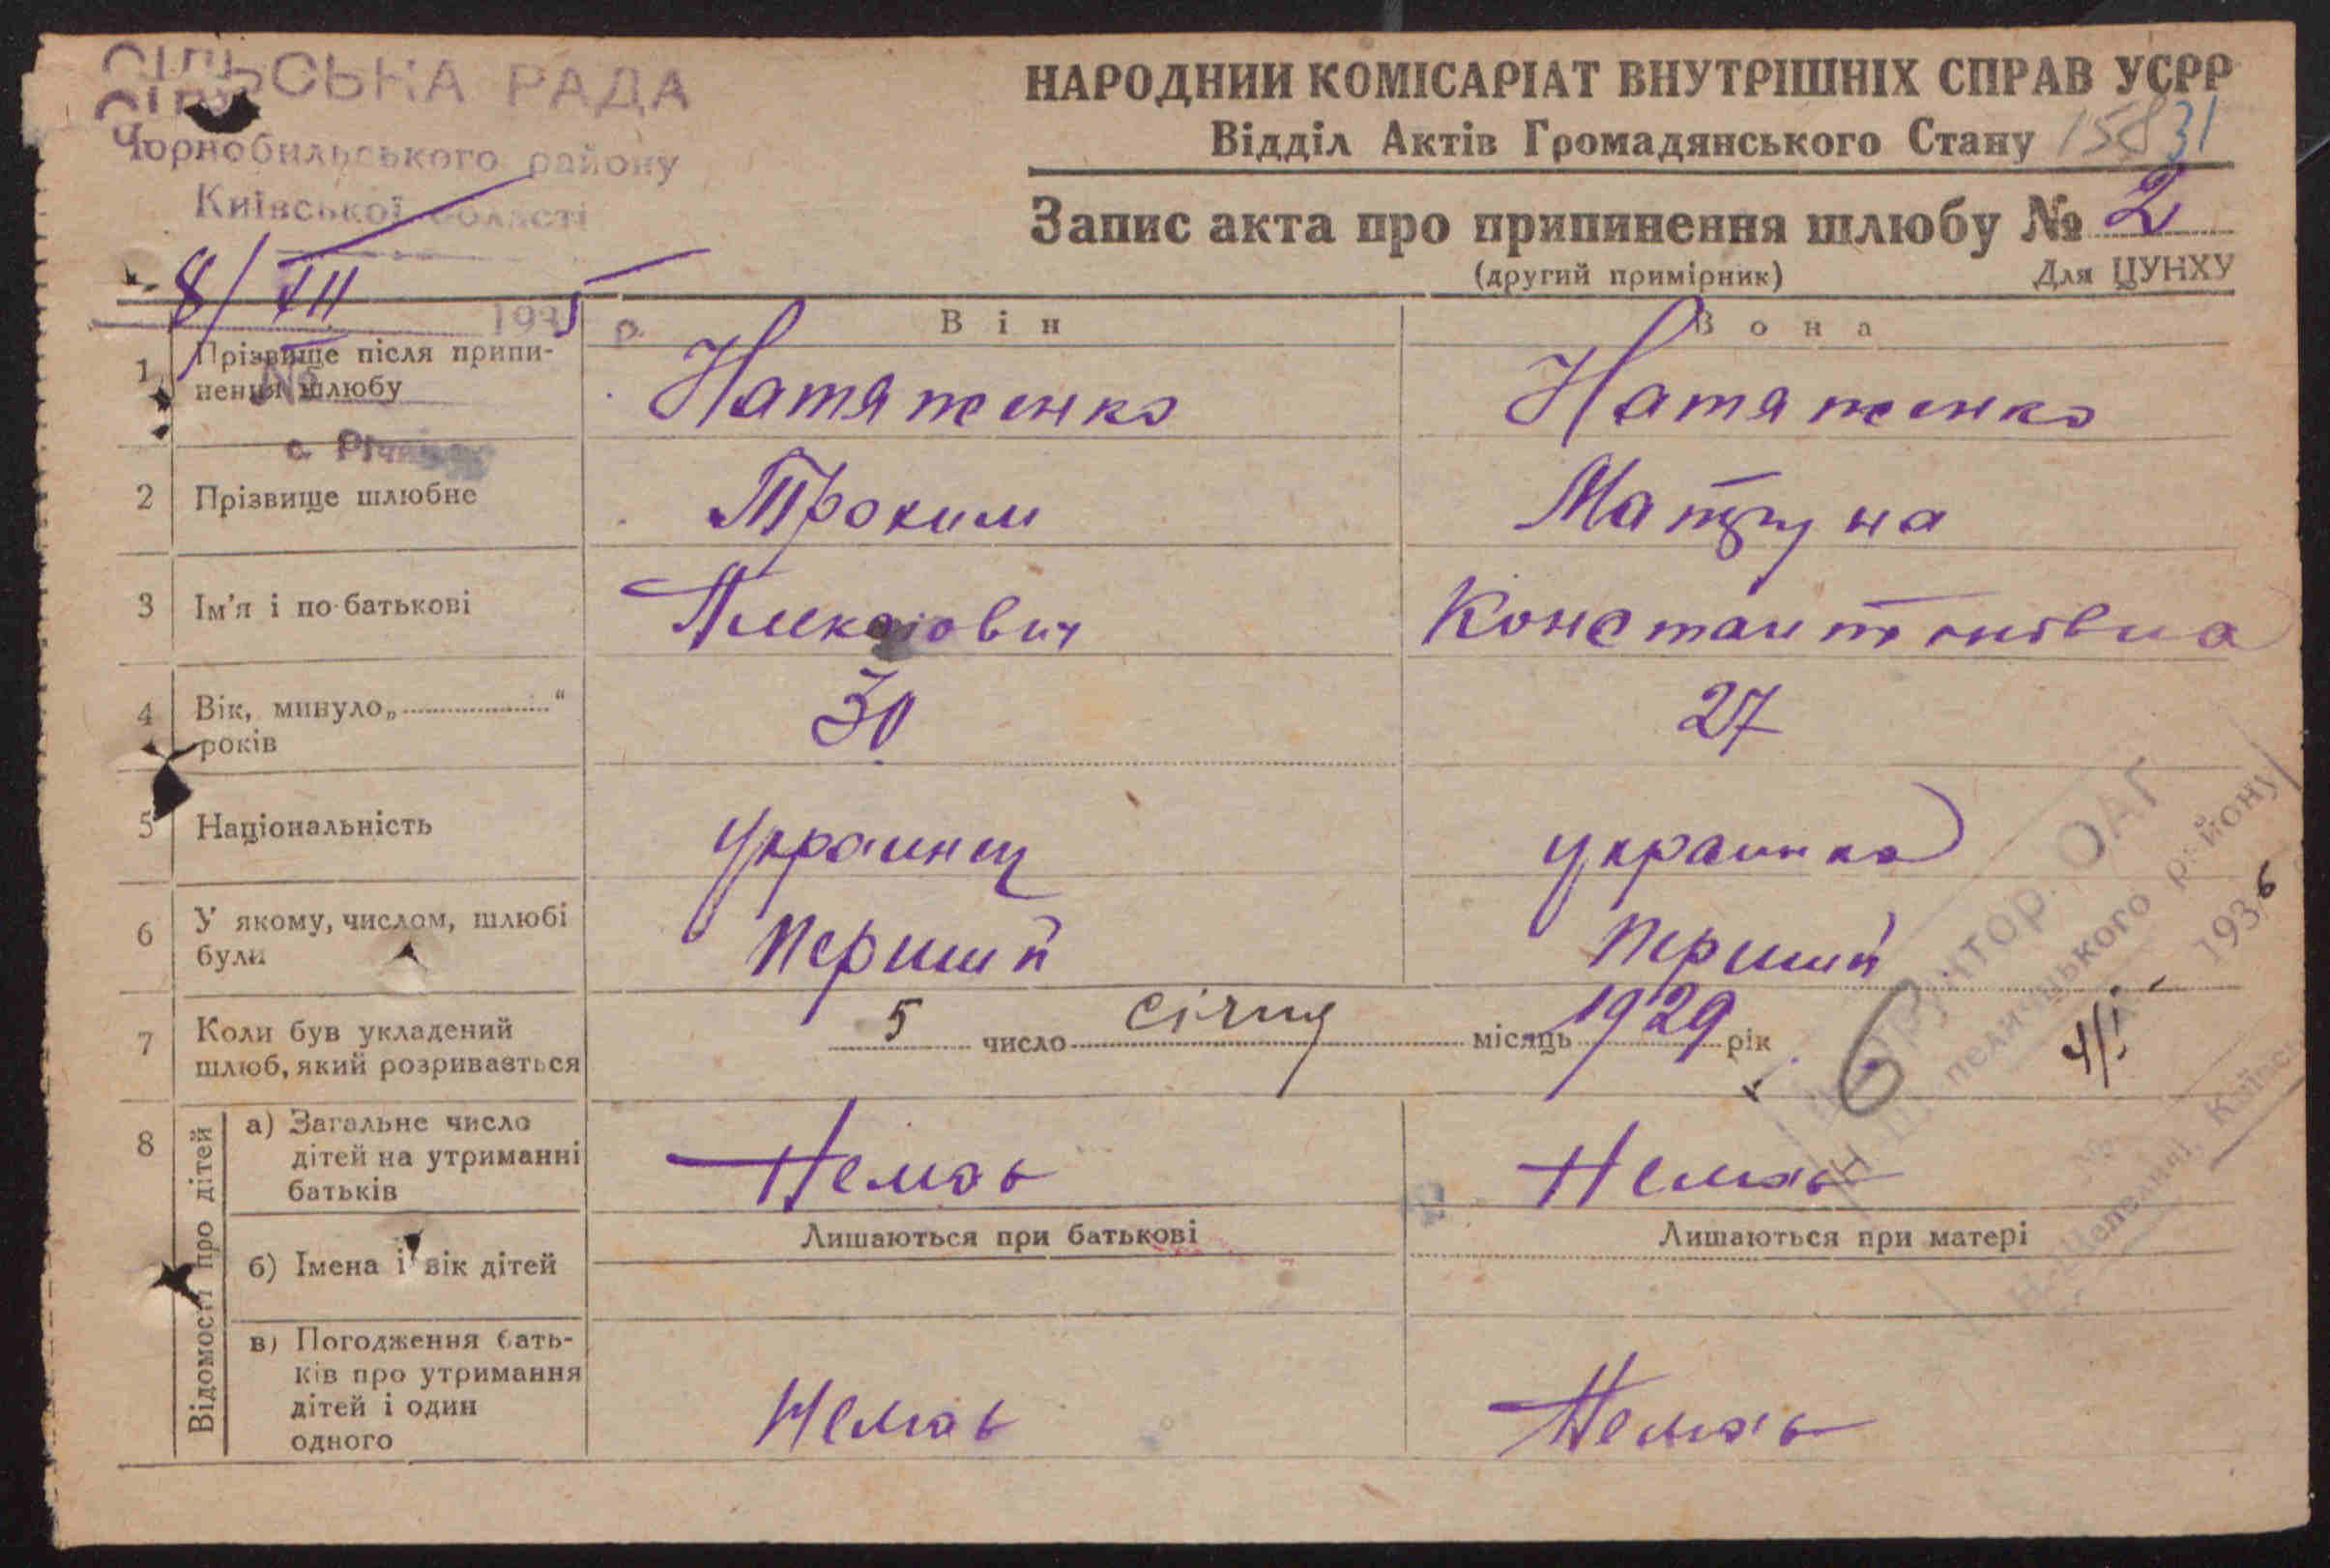 СІЛЬСЬКА РАДА
Чорнобильського району
Київської області
8/VII 1935 р.
№
с.
НАРОДНИЙ КОМІСАРІАТ ВНУТРІШНІХ СПРАВ УСРР
Відділ Актів Громадянського Стану 15831
Запис акта про припинення шлюбу № 2
(другий примірник) Для ЦУНХУ
Він Вона
1 Прізвище після припи-
нення шлюбу
Натяженко Натяженко
2 Прізвище шлюбне Трохим Матруна
3 Ім'я і по-батькові Константоновна
4 Вік, минуло „ “
років
30 27
5 Національність украинец украинка
6 У якому, числом, шлюбі
були
перший перший
7 Коли був укладений
шлюб, який розривається
5 число січня місяць 1929 рік
6
4/I 1936
ОАГ
району
8 Відомості про дітей
а) Загальне число
дітей на утриманні
батьків
Немає Немає
Лишаються при батькові Лишаються при матері
б) Імена і вік дітей
в) Погодження бать-
ків про утримання
дітей і один
одного
Немає Немає